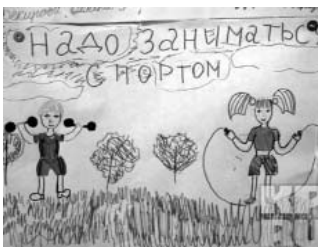 НАДО ЗАНИМАТЬС
СПОРТОМ